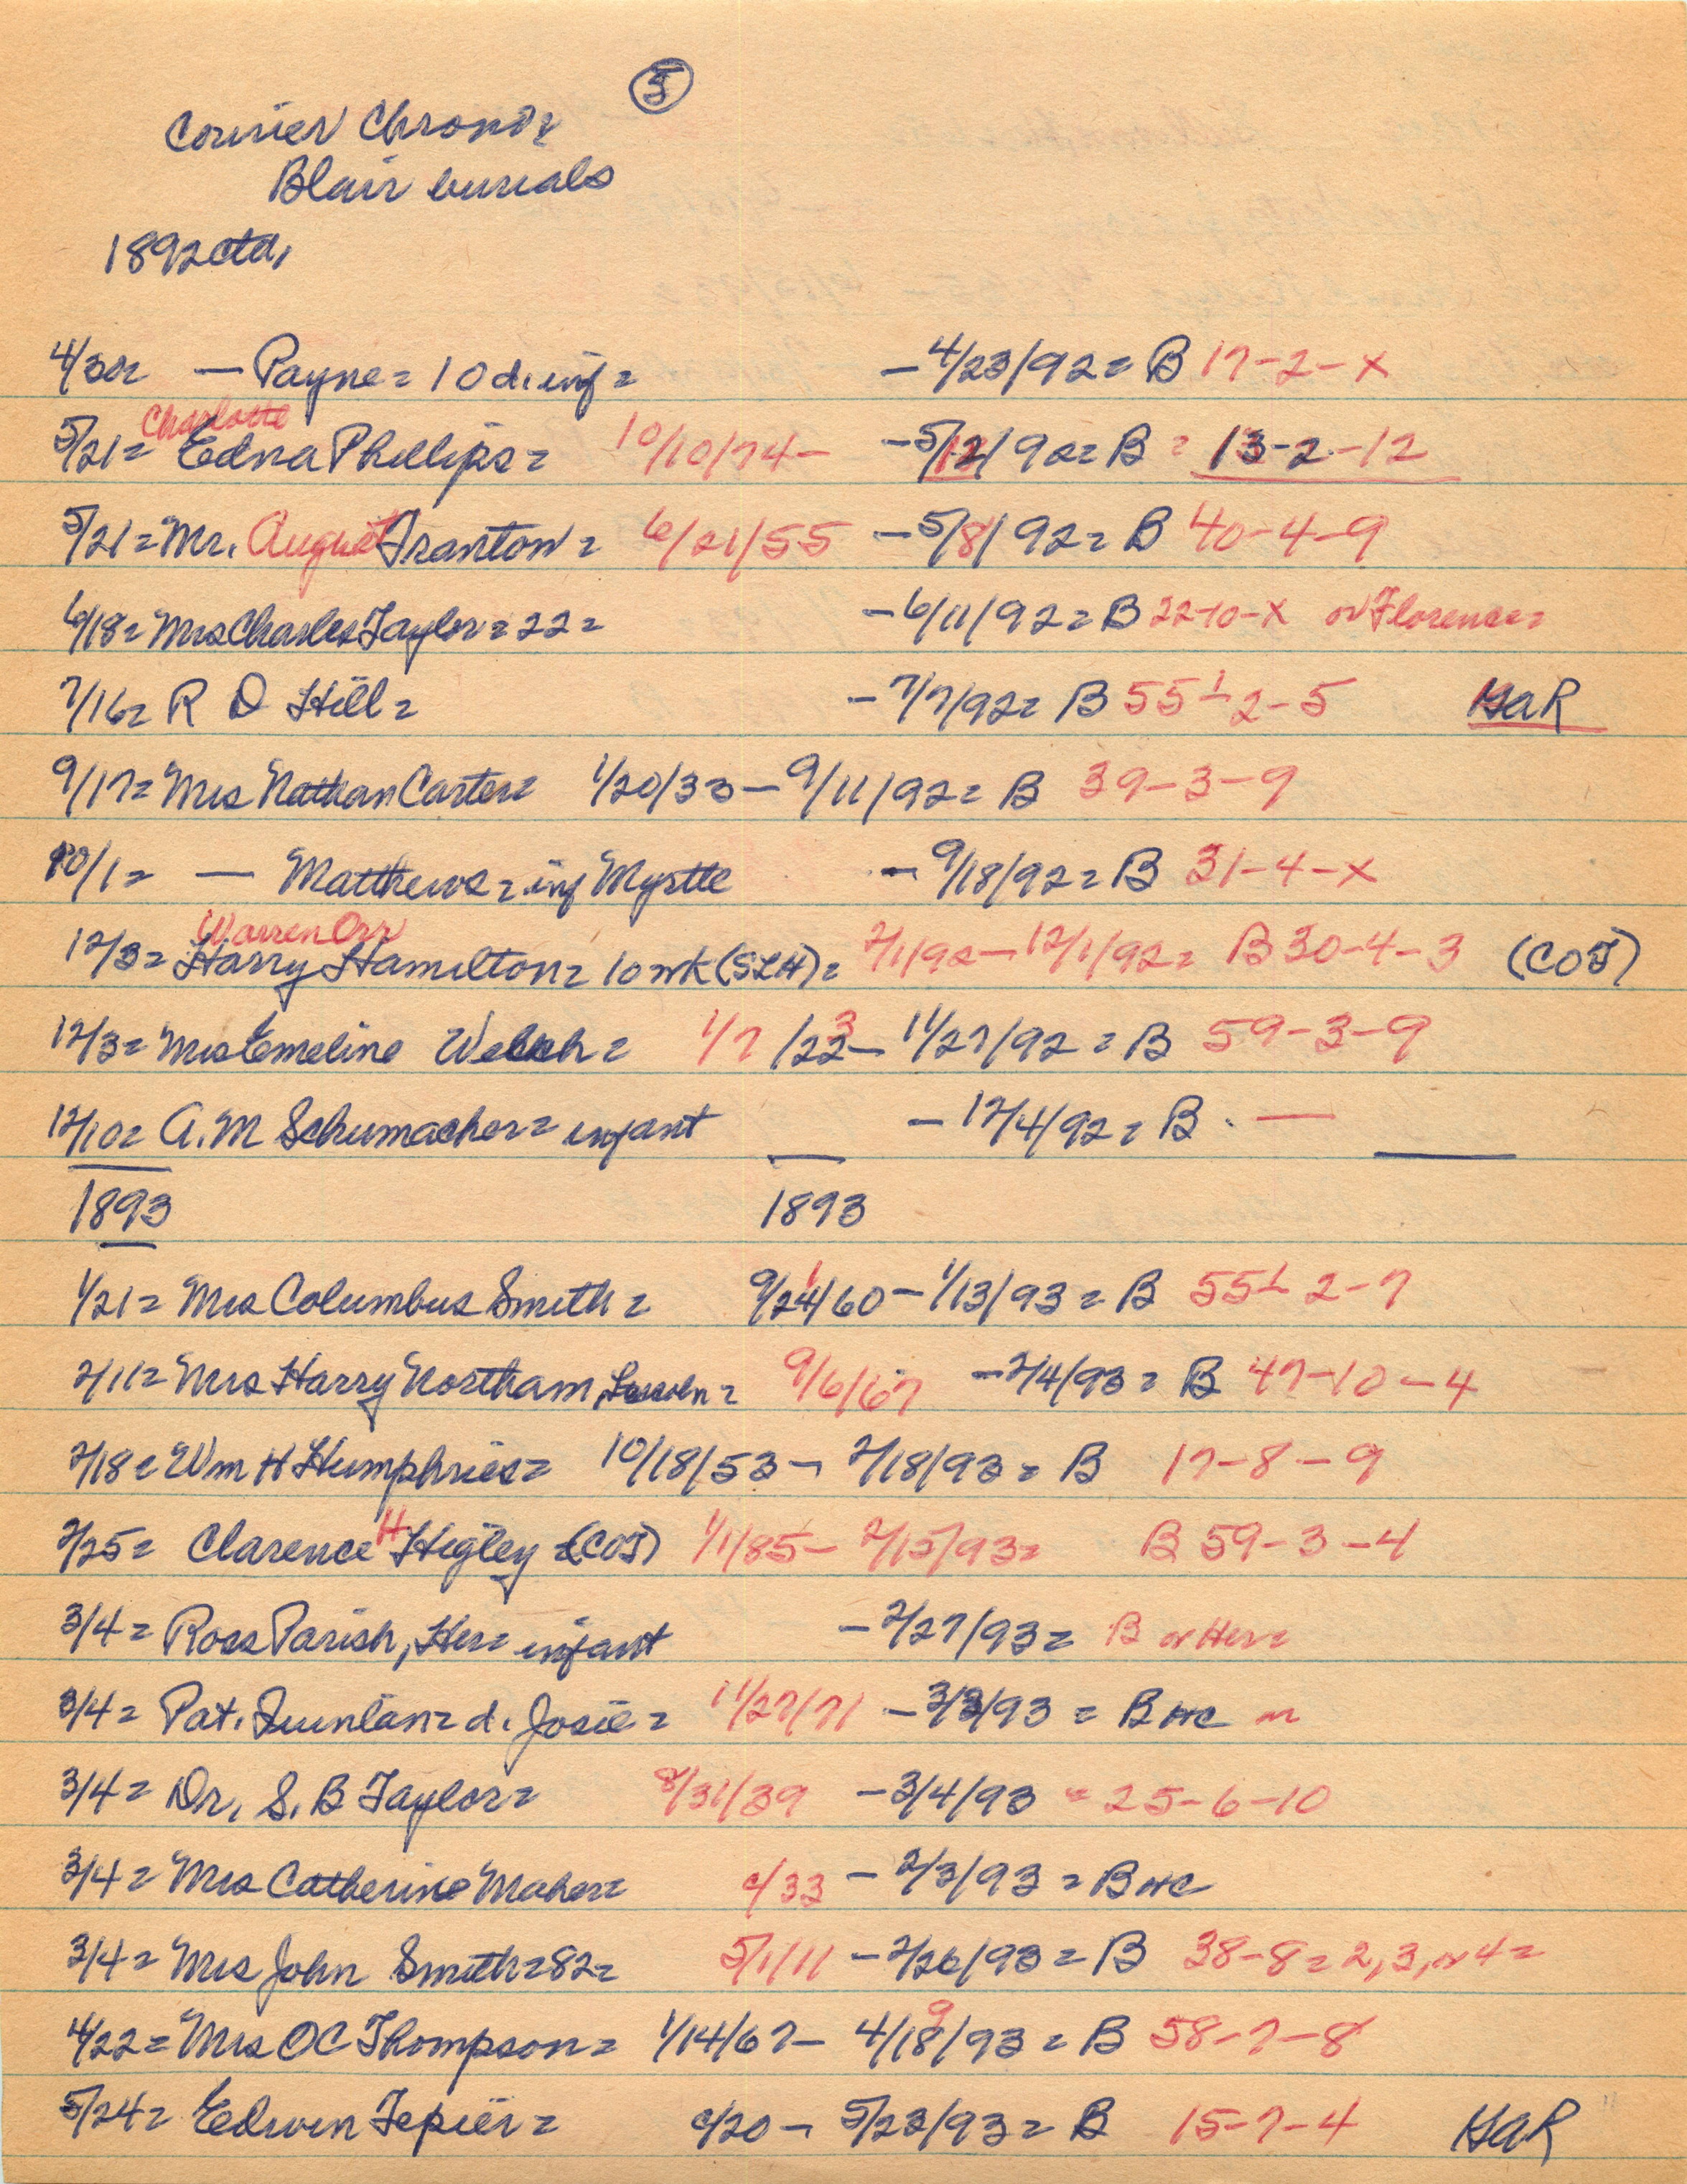 5
Courier Chron =
Blair burials
1892 ctd.
4/30 = — Payne = 10 d. inf = - 4/23/92 = B 17-2-X
Charlotte
5/21 = Edna Phillips = 10/10/74 - - 5/12/92 = B = 13-2-12
5/21 = Mr. August Tranton = 6/21/55 - 5/8/92 = B 40-4-9
6/18 = Mrs Charles Taylor = 22 = - 6/11/92 = B 22-10-X or Florence =
7/16 = R D Hill = - 7/7/92 = B 55 1-2-5 GAR
9/17 = Mrs Nathan Carter = 1/20/33 - 9/11/92 = B 39-3-9
10/1 = — Matthews = inf Myrtle - 9/18/92 = B 31-4-X
Warren Orr
12/3 = Harry Hamilton = 10 wk (SLH) = 2/1/92 - 12/1/92 = B 30-4-3 (COJ)
12/3 = Mrs Emeline Welch = 1/7/23 - 11/27/92 = B 59-3-9
12/10 = A. M Schumacher = infant - 12/4/92 = B . —
1893 1893
1/21 = Mrs Columbus Smith = 9/24/60 - 1/13/93 = B 55 1-2-7
2/11 = Mrs Harry Northam, = 9/6/67 - 2/4/93 = B 47-10-4
2/18 = Wm H Humphries = 10/18/53 - 2/18/93 = B 17-8-9
2/25 = Clarence H Higley = (COJ) 1/1/85 - 2/15/93 = B 59-3-4
3/4 = Ross Parish, Her = infant - 2/27/93 = B or Her =
3/4 = Pat. Quinlan = d. Josie = 11/27/71 - 3/3/93 = B HC or
3/4 = Dr. S. B Taylor = 8/31/39 - 3/4/93 = 25-6-10
3/4 = Mrs Catherine Maher = c/33 - 2/3/93 = B HC
3/4 = Mrs John Smith = 82 = 5/1/11 - 2/26/93 = B 38-8 = 2, 3, or 4 =
9
4/22 = Mrs OC Thompson = 1/14/67 - 4/18/93 = B 58-7-8
5/24 = Edwin Tepier = c/20 - 5/23/93 = B 15-7-4 GAR